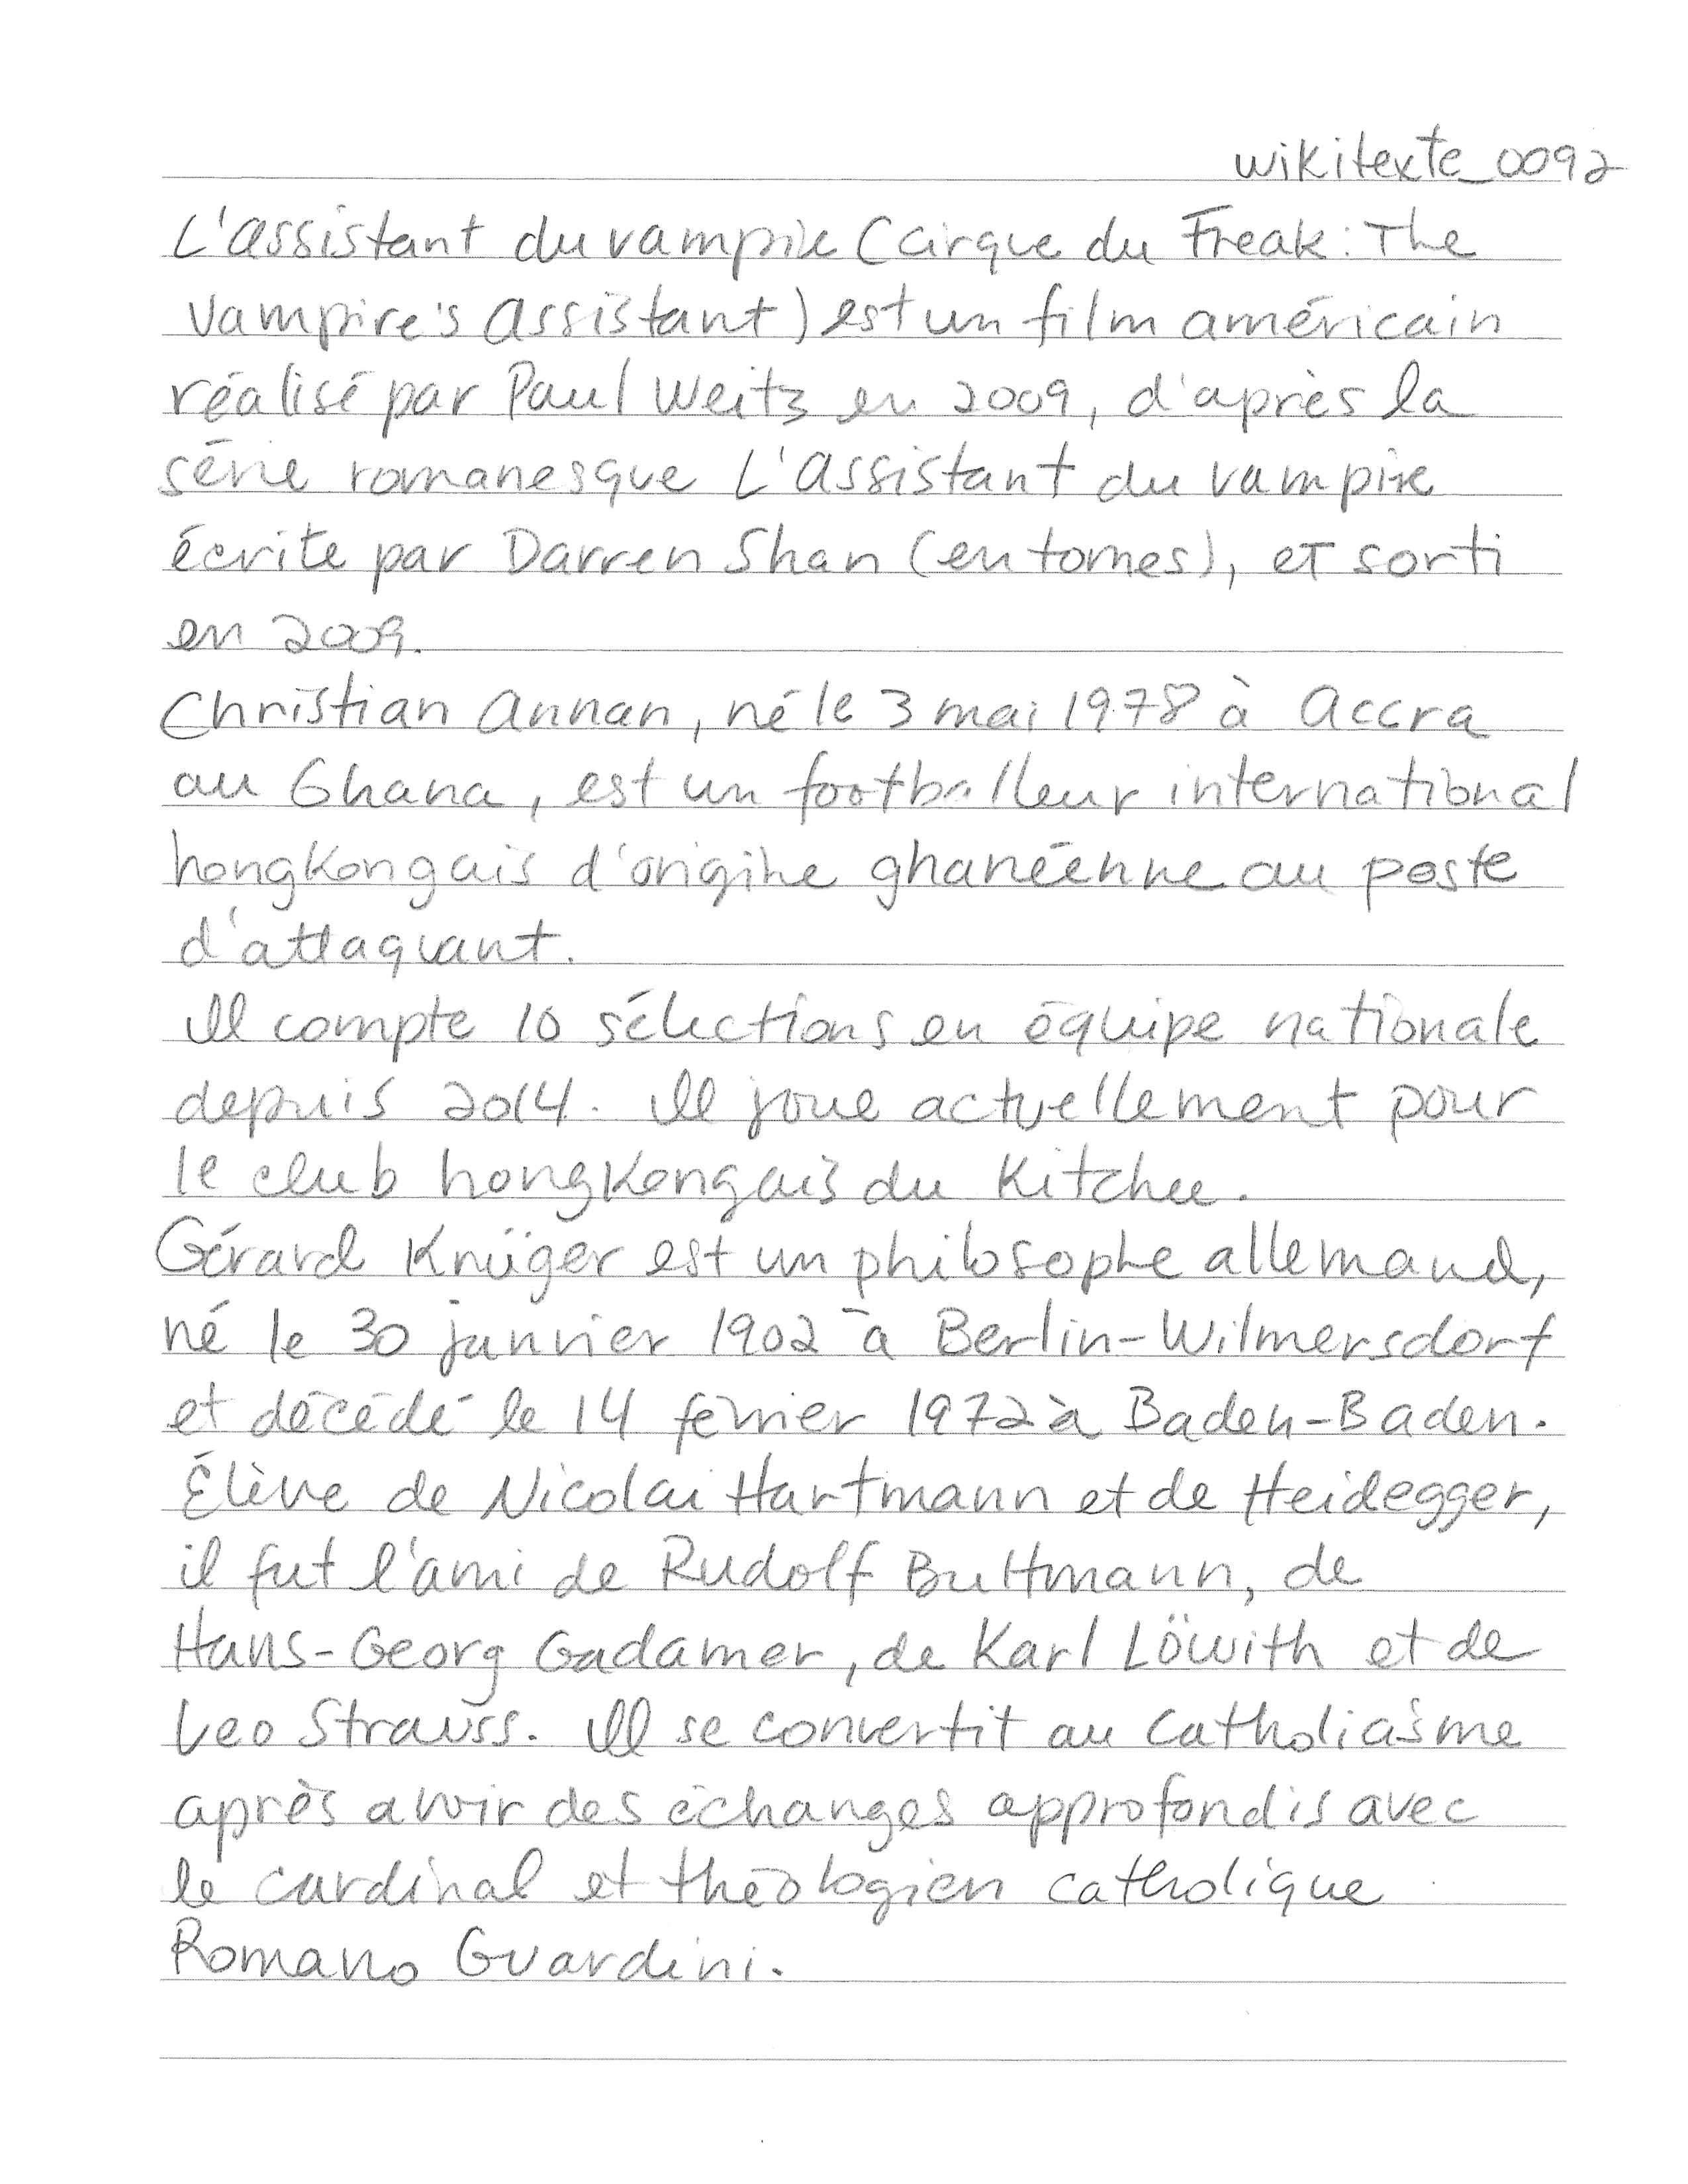 wikitexte_0092
L'assistant du vampire (Cirque du Freak: The
Vampire's Assistant) est un film américain
réalisé par Paul Weitz en 2009, d'après la
série romanesque L'assistant du vampire
écrite par Darren Shan (en tomes), et sorti
en 2009.
Christian Annan, né le 3 mai 1978 à Accra
au Ghana, est un footballeur international
hongkongais d'origine ghanéenne au poste
d'attaquant.
Il compte 10 sélections en équipe nationale
depuis 2014. Il joue actuellement pour
le club hongkongais du Kitchee.
Gérard Krüger est un philosophe allemand,
né le 30 janvier 1902 à Berlin-Wilmersdorf
et décédé le 14 février 1972 à Baden-Baden.
Élève de Nicolai Hartmann et de Heidegger,
il fut l'ami de Rudolf Bultmann, de
Hans-Georg Gadamer, de Karl Löwith et de
Leo Strauss. Il se convertit au catholicisme
après avoir des échanges approfondis avec
le cardinal et théologien catholique
Romano Guardini.